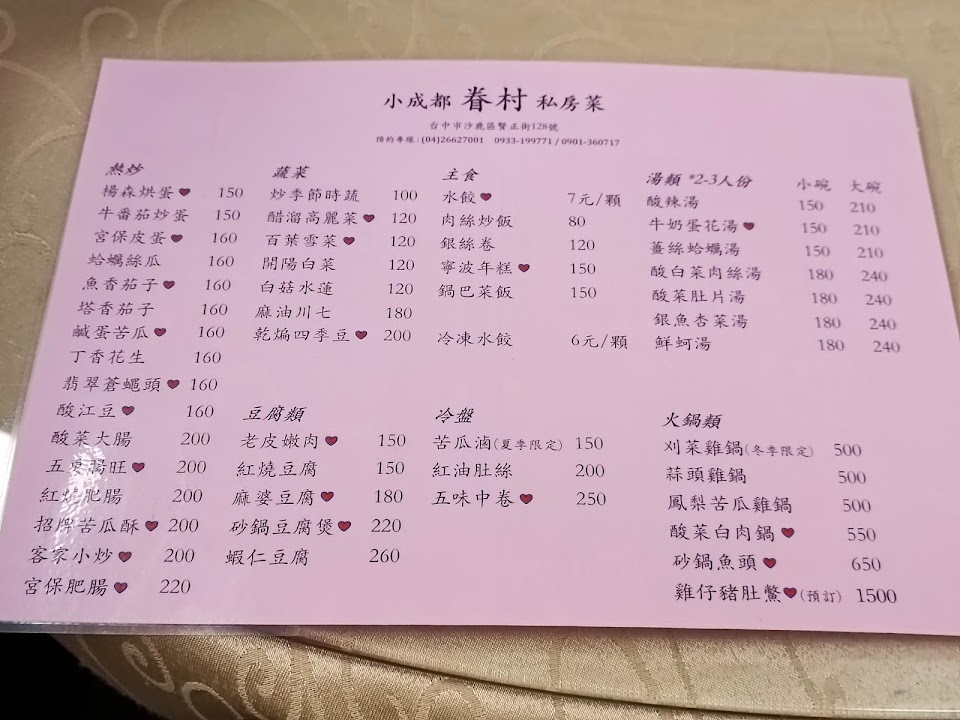 小成都 眷村 私房菜
台中市沙鹿區賢正街128號
預約專線:(04)26627001 0933-199771 / 0901-360717
熱炒
楊森烘蛋♥ 150
牛番茄炒蛋 150
宮保皮蛋♥ 160
蛤蠣絲瓜 160
魚香茄子♥ 160
塔香茄子 160
鹹蛋苦瓜♥ 160
丁香花生 160
翡翠蒼蠅頭♥ 160
酸江豆♥ 160
酸菜大腸 200
五更腸旺♥ 200
紅燒肥腸 200
招牌苦瓜酥♥ 200
客家小炒♥ 200
宮保肥腸♥ 220
蔬菜
炒季節時蔬 100
醋溜高麗菜♥ 120
百葉雪菜♥ 120
開陽白菜 120
白菇水蓮 120
麻油川七 180
乾煸四季豆♥ 200
豆腐類
老皮嫩肉♥ 150
紅燒豆腐 150
麻婆豆腐♥ 180
砂鍋豆腐煲♥ 220
蝦仁豆腐 260
主食
水餃♥ 7元/顆
肉絲炒飯 80
銀絲卷 120
寧波年糕♥ 150
鍋巴菜飯 150
冷凍水餃 6元/顆
冷盤
苦瓜滷(夏季限定) 150
紅油肚絲 200
五味中卷♥ 250
湯類 *2-3人份 小碗 大碗
酸辣湯 150 210
牛奶蛋花湯♥ 150 210
薑絲蛤蠣湯 150 210
酸白菜肉絲湯 180 240
酸菜肚片湯 180 240
銀魚杏菜湯 180 240
鮮蚵湯 180 240
火鍋類
刈菜雞鍋(冬季限定) 500
蒜頭雞鍋 500
鳳梨苦瓜雞鍋 500
酸菜白肉鍋♥ 550
砂鍋魚頭♥ 650
雞仔豬肚鱉♥(預訂) 1500